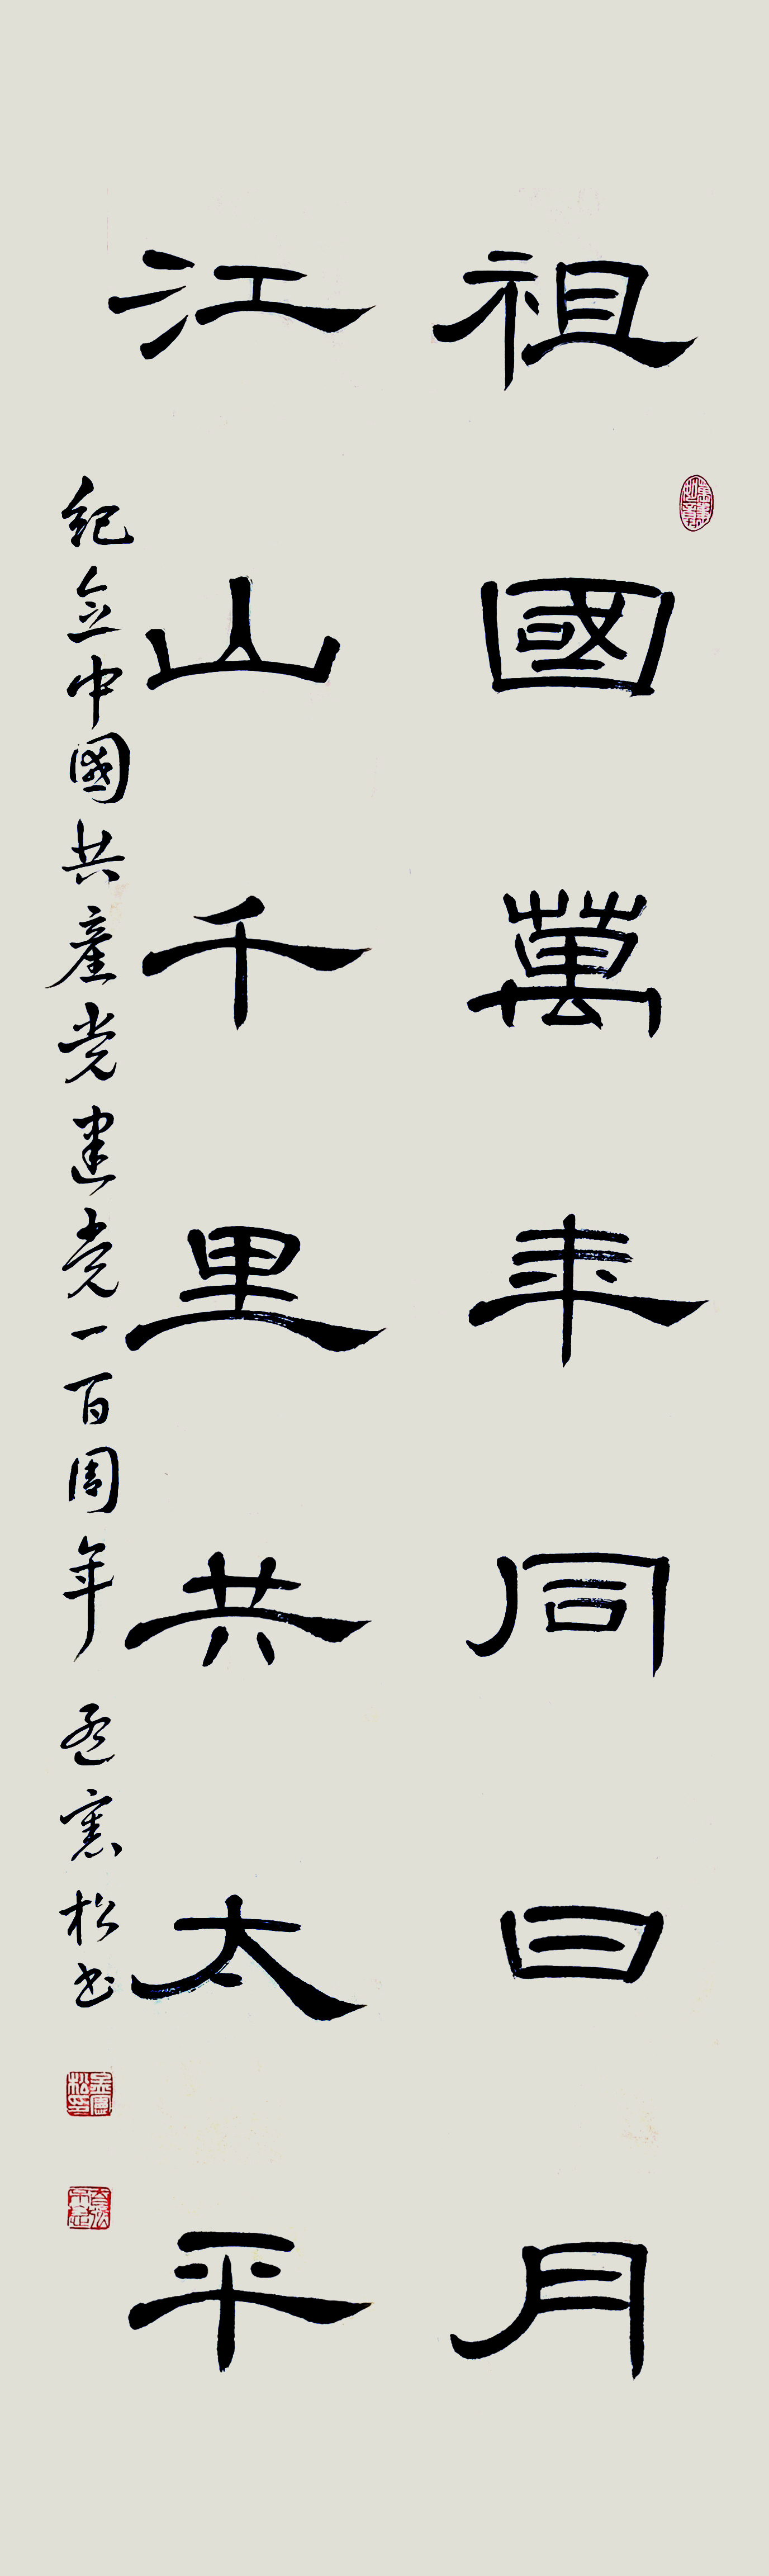 祖國萬年同日月
江山千里共太平
紀念中國共產党建党一百周年 孟憲松书